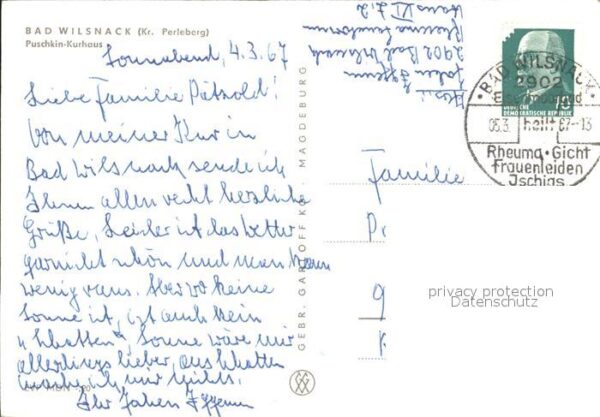 BAD WILSNACK (Kr. Perleberg)
Puschkin-Kurhaus
Sonnabend, 4.3.67
Liebe Familie Pätzold!
Von meiner Kur in
Bad Wilsnack sende ich
Ihnen allen recht herzliche
Grüße, Leider ist das Wetter
garnicht schön und man kann
wenig raus. Aber wo keine
Sonne ist, ist auch kein
"Schatten". Sonne wäre mir
allerdings lieber, aus Schatten
mache ich mir nichts.
Ihr
GEBR. GARLOFF KG. MAGDEBURG
2902 Bad Wilsnack
Haus VI Z. 2
BAD WILSNACK
2902
Eisenmoorbad
05.3. heilt 67-13
Rheuma · Gicht
Frauenleiden
Ischias
DEUTSCHE
DEMOKRATISCHE REPUBLIK
10
Familie
P
g
privacy protection
Datenschutz